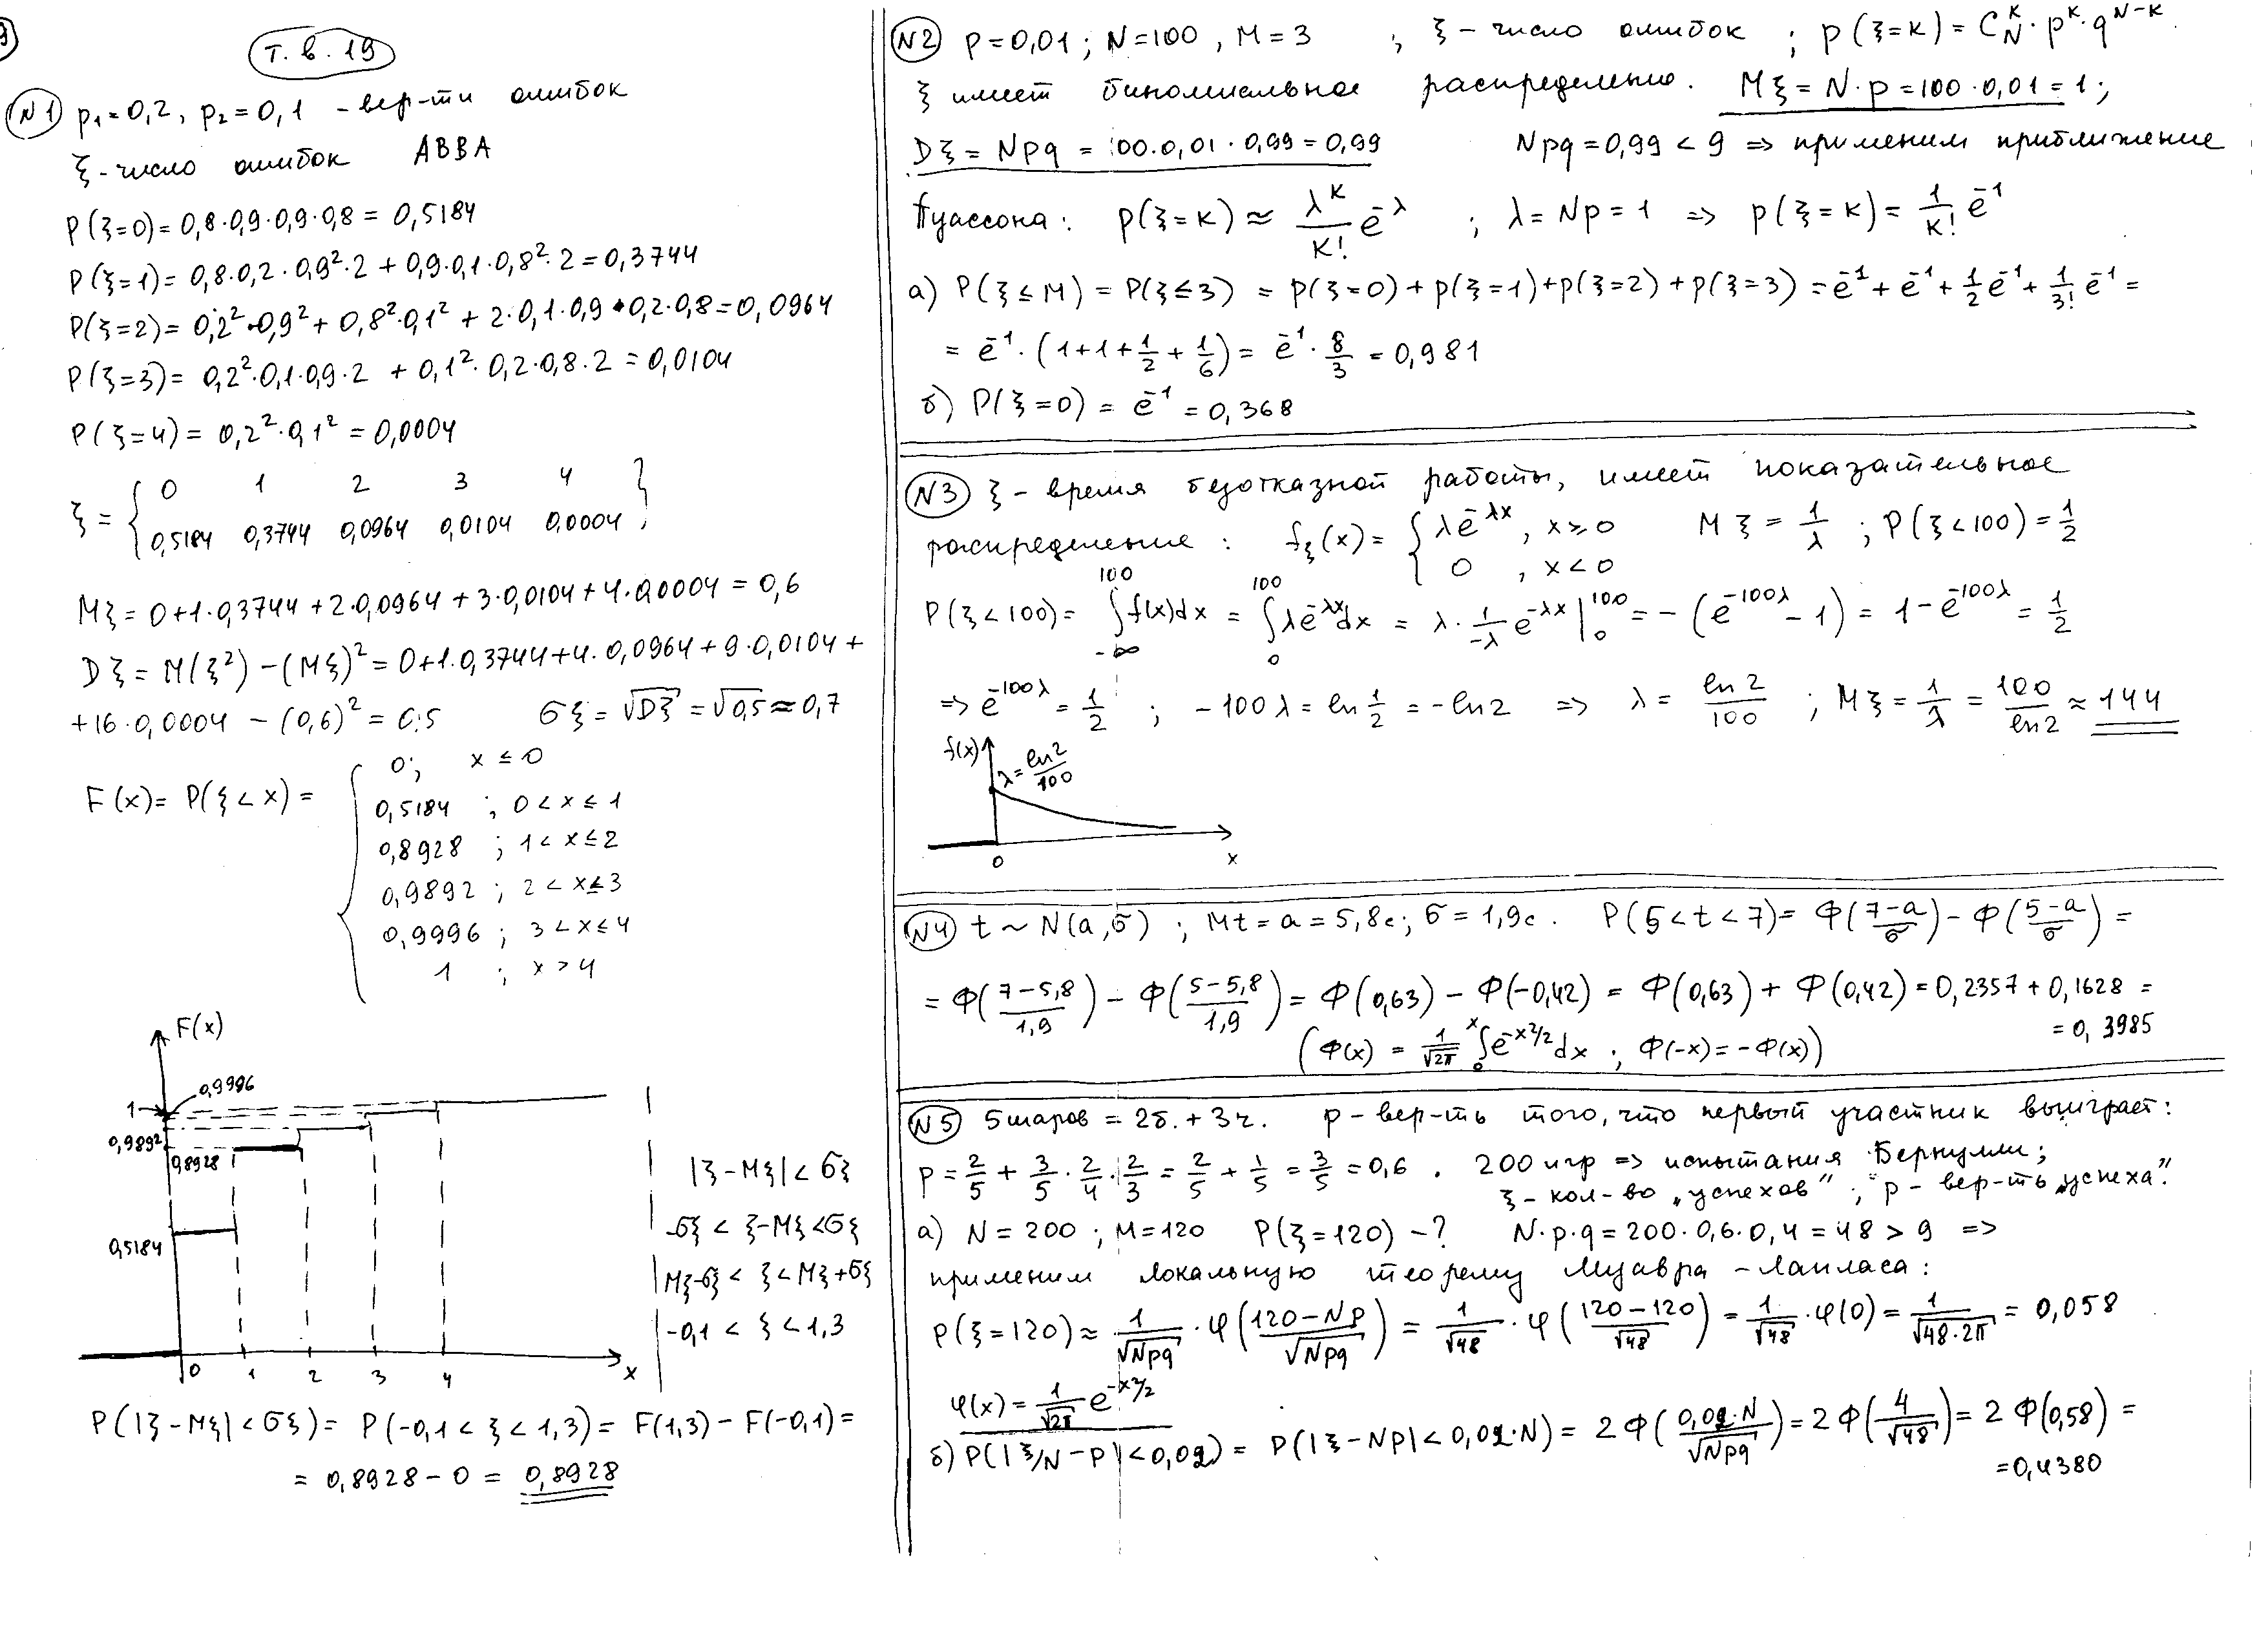 т. в. 19
№1 p₁=0,2, p₂=0,1 - вер-ти ошибок
ξ-число ошибок ABBA
P(ξ=0)=0,8·0,9·0,9·0,8=0,5184
P(ξ=1)=0,8·0,2·0,9²·2+0,9·0,1·0,8²·2=0,3744
P(ξ=2)=0,2²·0,9²+0,8²·0,1²+2·0,1·0,9·0,2·0,8=0,0964
P(ξ=3)=0,2²·0,1·0,9·2+0,1²·0,2·0,8·2=0,0104
P(ξ=4)=0,2²·0,1²=0,0004
0 1 2 3 4
ξ={ 0,5184 0,3744 0,0964 0,0104 0,0004 };
Mξ=0+1·0,3744+2·0,0964+3·0,0104+4·0,0004=0,6
Dξ=M(ξ²)-(Mξ)²=0+1·0,3744+4·0,0964+9·0,0104+
+16·0,0004-(0,6)²=0,5 σξ=√Dξ=√0,5≈0,7
0; x≤0
F(x)=P(ξ<x)= { 0,5184 ; 0<x≤1
0,8928 ; 1<x≤2
0,9892 ; 2<x≤3
0,9996 ; 3<x≤4
1 ; x>4
F(x)
0,9996
1
0,9892
0,8928
0,5184
0 1 2 3 4 x
|ξ-Mξ|<σξ
-σξ<ξ-Mξ<σξ
Mξ-σξ<ξ<Mξ+σξ
-0,1<ξ<1,3
P(|ξ-Mξ|<σξ)=P(-0,1<ξ<1,3)=F(1,3)-F(-0,1)=
=0,8928-0=0,8928
№2 p=0,01; N=100, M=3 ; ξ-число ошибок ; p(ξ=k)=C_N^k·p^k·q^(N-k).
ξ имеет биномиальное распределение. Mξ=N·p=100·0,01=1;
Dξ=Npq=100·0,01·0,99=0,99 Npq=0,99<9 ⇒ применим приближение
Пуассона: p(ξ=k)≈λ^k/k! e^(-λ) ; λ=Np=1 ⇒ p(ξ=k)=1/k! e^(-1)
а) P(ξ≤M)=P(ξ≤3)=p(ξ=0)+p(ξ=1)+p(ξ=2)+p(ξ=3)=e^(-1)+e^(-1)+1/2 e^(-1)+1/3! e^(-1)=
=e^(-1)·(1+1+1/2+1/6)=e^(-1)·8/3=0,981
б) P(ξ=0)=e^(-1)=0,368
№3 ξ-время безотказной работы, имеет показательное
распределение: f_ξ(x)={ λe^(-λx), x≥0 Mξ=1/λ ; P(ξ<100)=1/2
0 , x<0
P(ξ<100)=∫_(-∞)^100 f(x)dx=∫_0^100 λe^(-λx)dx=λ·1/(-λ) e^(-λx)|_0^100=-(e^(-100λ)-1)=1-e^(-100λ)=1/2
⇒ e^(-100λ)=1/2 ; -100λ=ln 1/2=-ln2 ⇒ λ=ln2/100 ; Mξ=1/λ=100/ln2≈144
f(x)
λ=ln2/100
0 x
№4 t~N(a,σ) ; Mt=a=5,8с; σ=1,9с. P(5<t<7)=Φ((7-a)/σ)-Φ((5-a)/σ)=
=Φ((7-5,8)/1,9)-Φ((5-5,8)/1,9)=Φ(0,63)-Φ(-0,42)=Φ(0,63)+Φ(0,42)=0,2357+0,1628=
=0,3985
(Φ(x)=1/√2π ∫_0^x e^(-x²/2)dx ; Φ(-x)=-Φ(x))
№5 5 шаров=2б.+3ч. p-вер-ть того, что первый участник выиграет:
p=2/5+3/5·2/4·2/3=2/5+1/5=3/5=0,6. 200 игр ⇒ испытания Бернулли;
ξ-кол-во „успехов"; p-вер-ть „успеха".
а) N=200 ; M=120 P(ξ=120)-? N·p·q=200·0,6·0,4=48>9 ⇒
применим локальную теорему Муавра-Лапласа:
P(ξ=120)≈1/√Npq·φ((120-Np)/√Npq)=1/√48·φ((120-120)/√48)=1/√48·φ(0)=1/√(48·2π)=0,058
φ(x)=1/√2π e^(-x²/2)
б) P(|ξ/N-p|<0,02)=P(|ξ-Np|<0,02·N)=2Φ(0,02·N/√Npq)=2Φ(4/√48)=2Φ(0,58)=
=0,4380